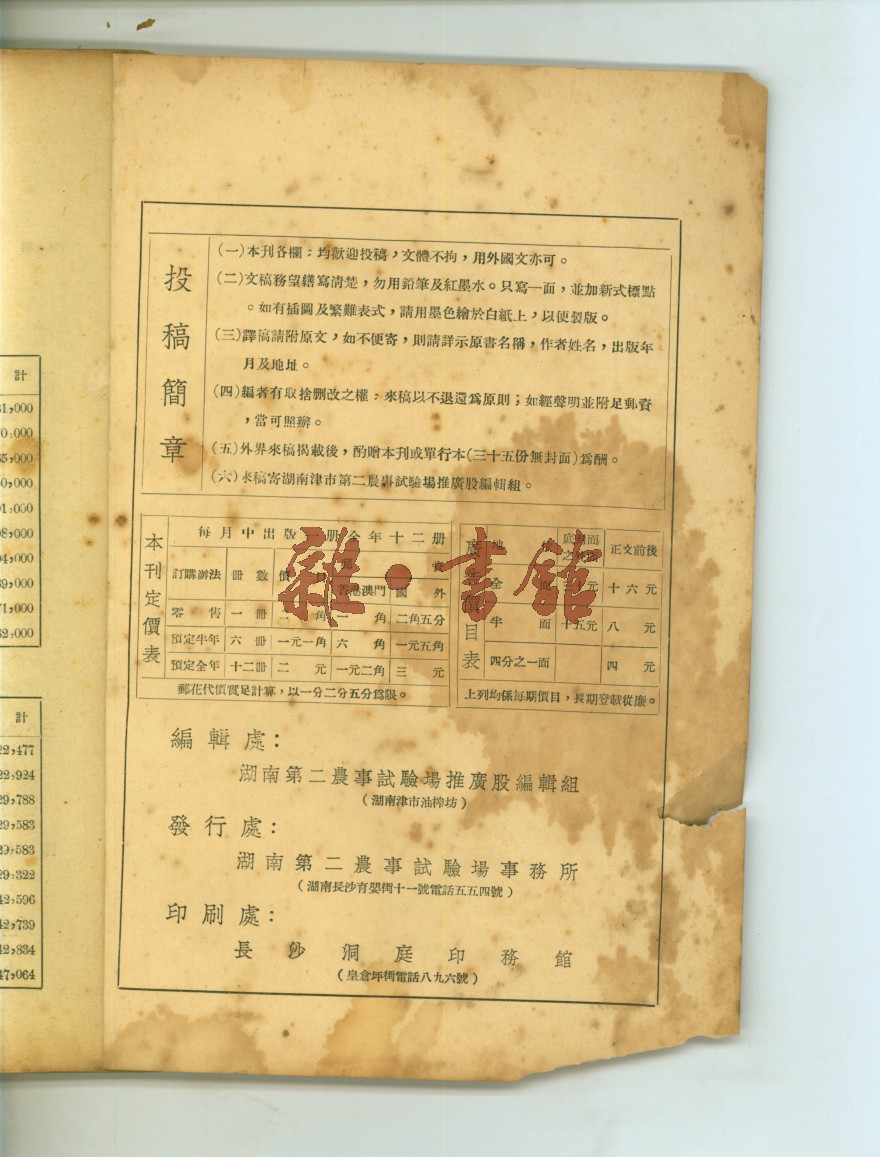 計
31,000
70,000
35,000
30,000
01,000
98,000
94,000
39,000
71,000
32,000
計
22,477
22,924
29,788
29,583
29,583
29,322
42,596
42,739
42,834
47,064
投稿簡章
(一)本刊各欄,均歡迎投稿,文體不拘,用外國文亦可。
(二)文稿務望繕寫清楚,勿用鉛筆及紅墨水。只寫一面,並加新式標點
。如有插圖及繁難表式,請用墨色繪於白紙上,以便製版。
(三)譯稿請附原文,如不便寄,則請詳示原書名稱,作者姓名,出版年
月及地址。
(四)編者有取捨刪改之權,來稿以不退還爲原則;如經聲明並附足郵資
,當可照辦。
(五)外界來稿揭載後,酌贈本刊或單行本(三十五份無封面)爲酬。
(六)來稿寄湖南津市第二農事試驗場推廣股編輯組。
本刊定價表
每月中出版一册全年十二册
訂購辦法 冊數 價 郵 費
香港澳門 國外
零售 一冊 二角 一角 二角五分
預定半年 六冊 一元一角 六角 一元五角
預定全年 十二冊 二元 一元二角 三元
郵花代價實足計算,以一分二分五分爲限。
廣 價目表
地 底封面之 正文前後
全面 元 十六元
半面 十五元 八元
四分之一面 四元
上列均係每期價目,長期登載從廉。
雜·書館
編輯處:
湖南第二農事試驗場推廣股編輯組
(湖南津市油榨坊)
發行處:
湖南第二農事試驗場事務所
(湖南長沙育嬰街十一號電話五五四號)
印刷處:
長沙洞庭印務館
(皇倉坪街電話八九六號)